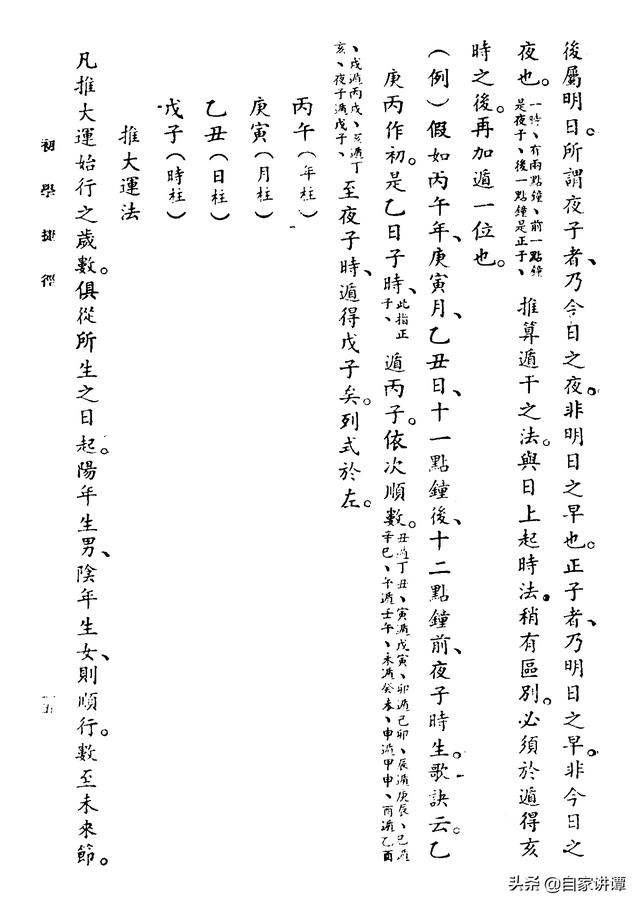 後屬明日。所謂夜子者、乃今日之夜。非明日之早也。正子者、乃明日之早。非今日之
夜也。一時、有兩點鐘、前一點鐘是夜子、後一點鐘是正子、推算遁干之法。與日上起時法。稍有區別。必須於遁得亥
時之後。再加遁一位也。
(例)假如丙午年、庚寅月、乙丑日、十一點鐘後、十二點鐘前、夜子時生。歌訣云。乙
庚丙作初。是乙日子時、此指正子、遁丙子。依次順數。丑遁丁丑、寅遁戊寅、卯遁己卯、辰遁庚辰、巳遁辛巳、午遁壬午、未遁癸未、申遁甲申、酉遁乙酉
、戌遁丙戌、亥遁丁亥、夜子遁戊子、至夜子時、遁得戊子矣。列式於左。
丙午(年柱)
庚寅(月柱)
乙丑(日柱)
戊子(時柱)
推大運法
凡推大運始行之歲數。俱從所生之日起。陽年生男、陰年生女、則順行。數至未來節。
初學捷徑
一五
头条 @自家讲谭